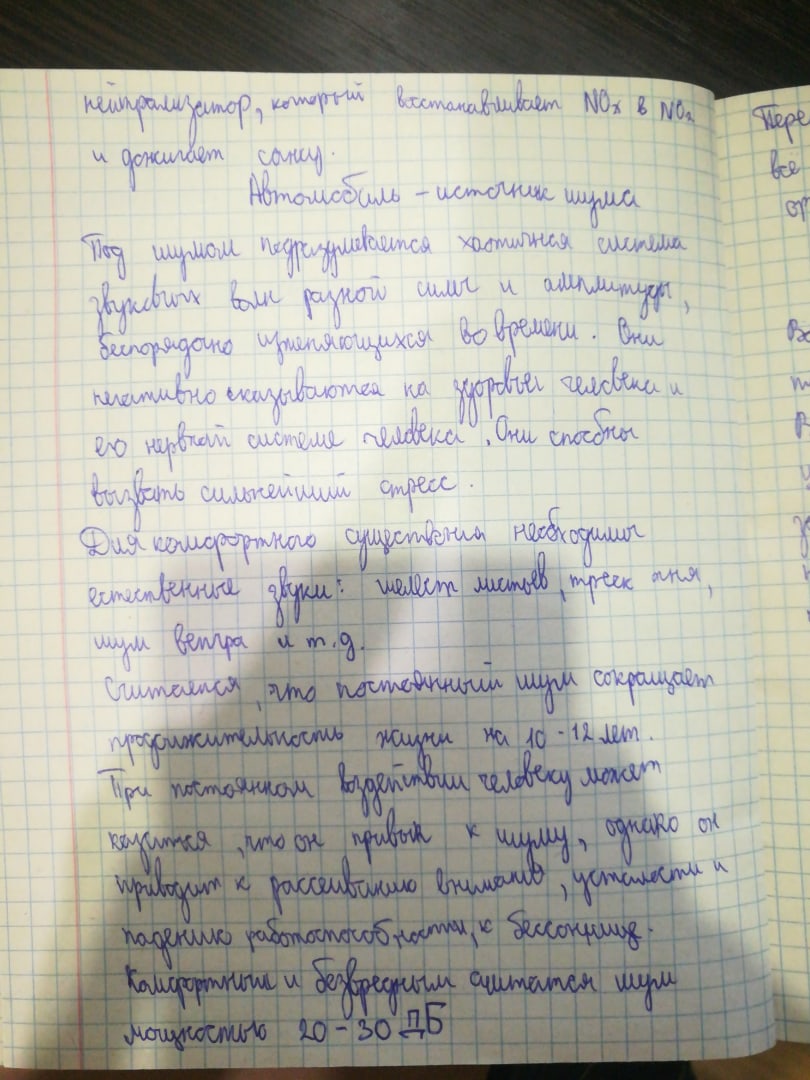 нейтрализатор, который восстанавливает NOx в NO2
и дожигает сажу.
Автомобиль – источник шума
Под шумом подразумевается хаотичная система
звуковых волн разной силы и амплитуды,
беспорядочно изменяющихся во времени. Они
негативно сказываются на здоровьи человека и
его нервной системе человека. Они способны
вызвать сильнейший стресс.
Для комфортного существения необходимы
естественные звуки: шелест листьев, треск огня,
шум ветра и т.д.
Считается, что постоянный шум сокращает
продолжительность жизни на 10-12 лет.
При постоянном воздействии человеку может
казаться, что он привык к шуму, однако он
приводит к рассеиванию внимания, усталости и
падению работоспособности, к бессоннице.
Комфортным и безвредным считатся шум
мощностью 20-30 ДБ
Пере
все